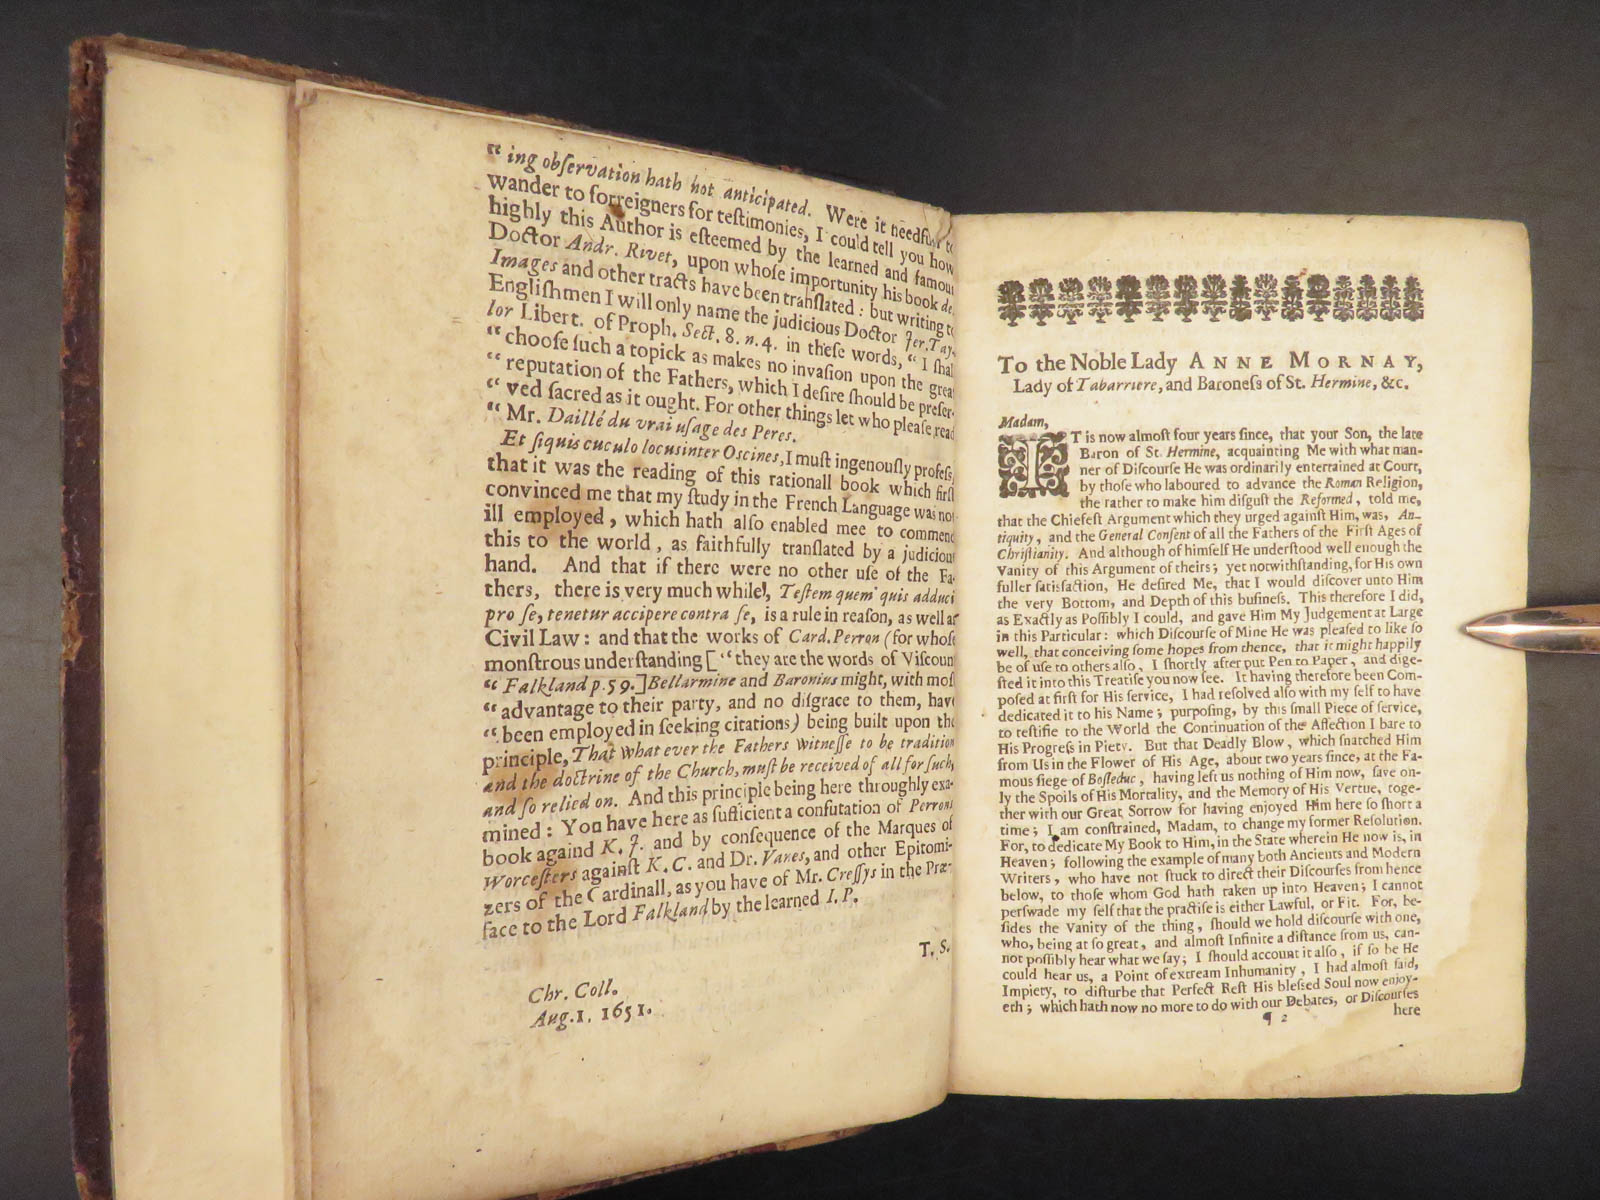 “ ing obſervation hath not anticipated. Were it needfull to
wander to forreigners for teſtimonies, I could tell you how
highly this Author is eſteemed by the learned and famous
Doctor Andr. Rivet, upon whoſe importunity his book de
Images and other tracts have been tranſlated : but writing to
Engliſhmen I will only name the judicious Doctor Jer. Tay-
lor Libert. of Proph. Sect. 8. n. 4. in theſe words, “ I ſhal
“ chooſe ſuch a topick as makes no invaſion upon the great
“ reputation of the Fathers, which I deſire ſhould be preſer-
“ ved ſacred as it ought. For other things let who pleaſe read
“ Mr. Daillé du vrai uſage des Peres.
Et ſiquis cuculo locus inter Oscines, I muſt ingenouſly profeſs,
that it was the reading of this rationall book which firſt
convinced me that my ſtudy in the French Language was not
ill employed, which hath alſo enabled mee to commend
this to the world, as faithfully tranſlated by a judicious
hand. And that if there were no other uſe of the Fa-
thers, there is very much while, Teſtem quem quis adduci
pro ſe, tenetur accipere contra ſe, is a rule in reaſon, as well as
Civil Law : and that the works of Card. Perron (for whoſe
monſtrous underſtanding [ “ they are the words of Viſcount
“ Falkland p. 59. ] Bellarmine and Baronius might, with moſt
“ advantage to their party, and no diſgrace to them, have
“ been employed in ſeeking citations) being built upon the
principle, That what ever the Fathers witneſſe to be tradition
and the doctrine of the Church, muſt be received of all for ſuch,
and ſo relied on. And this principle being here throughly exa-
mined : You have here as ſufficient a confutation of Perrons
book againd K. J. and by conſequence of the Marques of
Worceſters againſt K. C. and Dr. Vanes, and other Epitomi-
zers of the Cardinall, as you have of Mr. Creſſys in the Præ-
face to the Lord Falkland by the learned I. P.
T. S.
Chr. Coll.
Aug. 1. 1651.
To the Noble Lady ANNE MORNAY,
Lady of Tabarriere, and Baroneſs of St. Hermine, &c.
Madam,
IT is now almoſt four years ſince, that your Son, the late
Baron of St. Hermine, acquainting Me with what man-
ner of Diſcourſe He was ordinarily entertained at Court,
by thoſe who laboured to advance the Roman Religion,
the rather to make him diſguſt the Reformed, told me,
that the Chiefeſt Argument which they urged againſt Him, was, An-
tiquity, and the General Conſent of all the Fathers of the Firſt Ages of
Chriſtianity. And although of himſelf He underſtood well enough the
Vanity of this Argument of theirs; yet notwithſtanding, for His own
fuller ſatisfaction, He deſired Me, that I would diſcover unto Him
the very Bottom, and Depth of this buſineſs. This therefore I did,
as Exactly as Poſſibly I could, and gave Him My Judgement at Large
in this Particular: which Diſcourſe of Mine He was pleaſed to like ſo
well, that conceiving ſome hopes from thence, that it might happily
be of uſe to others alſo, I ſhortly after put Pen to Paper, and dige-
ſted it into this Treatiſe you now ſee. It having therefore been Com-
poſed at firſt for His ſervice, I had reſolved alſo with my ſelf to have
dedicated it to his Name; purpoſing, by this ſmall Piece of ſervice,
to teſtifie to the World the Continuation of the Affection I bare to
His Progreſs in Piety. But that Deadly Blow, which ſnatched Him
from Us in the Flower of His Age, about two years ſince, at the Fa-
mous ſiege of Boſleduc, having left us nothing of Him now, ſave on-
ly the Spoils of His Mortality, and the Memory of His Vertue, toge-
ther with our Great Sorrow for having enjoyed Him here ſo ſhort a
time; I am conſtrained, Madam, to change my former Reſolution.
For, to dedicate My Book to Him, in the State wherein He now is, in
Heaven; following the example of many both Ancients and Modern
Writers, who have not ſtuck to direct their Diſcourſes from hence
below, to thoſe whom God hath taken up into Heaven; I cannot
perſwade my ſelf that the practiſe is either Lawful, or Fit. For, be-
ſides the Vanity of the thing, ſhould we hold diſcourſe with one,
who, being at ſo great, and almoſt Infinite a diſtance from us, can-
not poſſibly hear what we ſay; I ſhould account it alſo, if ſo be He
could hear us, a Point of extream Inhumanity, I had almoſt ſaid,
Impiety, to diſturbe that Perfect Reſt His bleſſed Soul now enjoy-
eth; which hath now no more to do with our Debates, or Diſcourſes
¶ 2 here